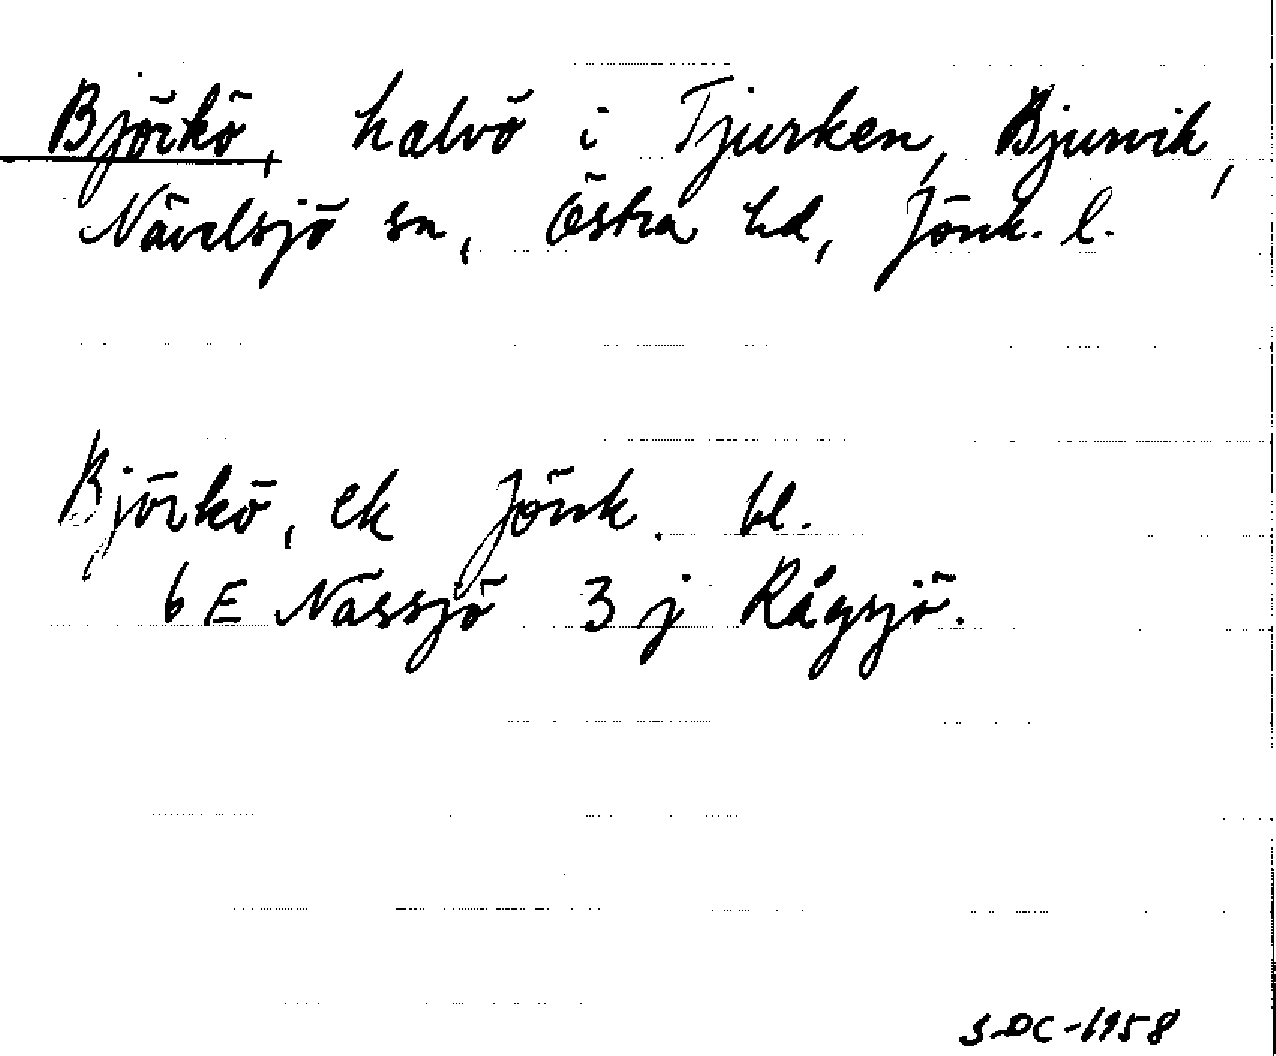 Björkö, halvö i Tjurken, Bjurvik,
Nävelsjö sn, Östra hd, Jönk. l.
Björkö, ek Jönk. bl.
6 E Nässjö 3 j Rågsjö.
SDC-1958